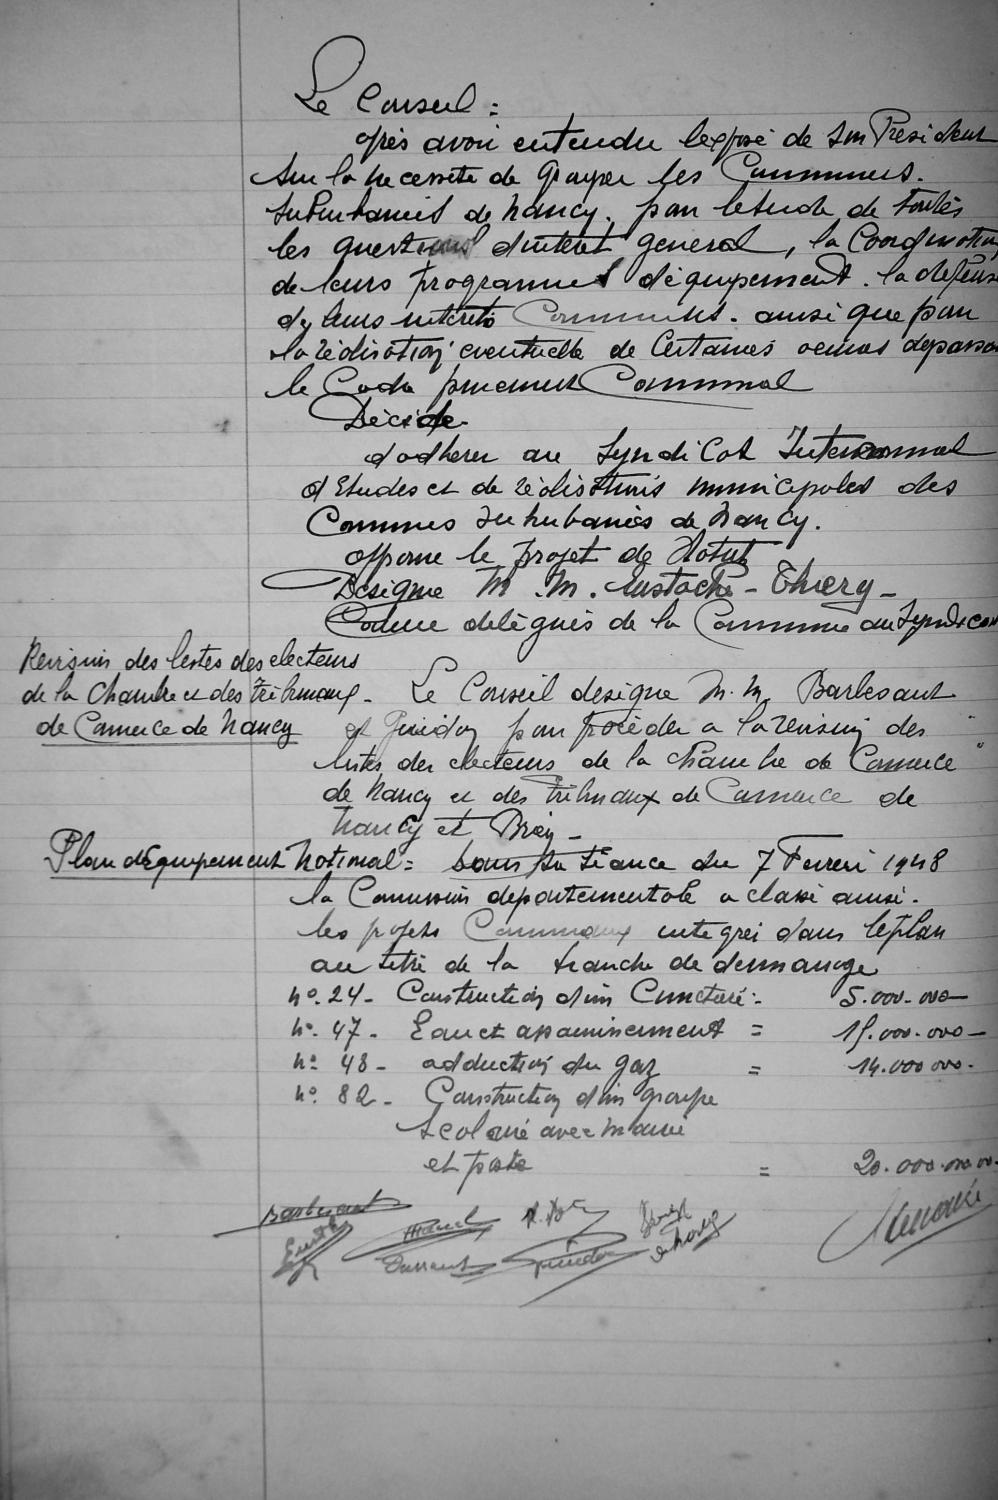 Le Conseil :
après avoir entendu l'exposé de son Président
sur la necessite de grouper les Communes.
suburbaines de Nancy. pour l'etude de toutes
les questions d'interêt general, la Coordination
de leurs programmes d'équipement. la defense
de leurs interêts Communs. ainsi que pour
la réalisation eventuelle de Certaines
le Cadre purement Communal
Décide
d'adherer au Syndicat Intercommunal
d'Etudes et de réalisations municipales des
Communes suburbaines de Nancy.
approuve le projet de Statuts
Designe M. M. Eustache - Thiery -
Comme délégués de la Commune au Syndicat
Revision des listes des electeurs
de la Chambre et des Tribunaux -
de Commerce de Nancy
Le Conseil designe M. M. Barbesant
et Guidon pour procéder a la revision des
listes des electeurs de la Chambre de Commerce
de Nancy et des Tribunaux de Commerce de
Nancy et Briey -
Plan d'Equipement National = Dans sa séance du 7 Fevrier 1948
la Commission départementale a classé ainsi.
les projets Communaux integrés dans le plan
au titre de la tranche de demarrage
No. 24 - Construction d'un Cimetière : 5.000.000 -
No. 47 - Eau et assainissement = 15.000.000 -
No 48 - adduction du gaz = 14.000.000 -
No. 82 - Construction d'un groupe
Scolaire avec Mairie
et poste = 20.000.000.00 -
Barbesant
Guidon